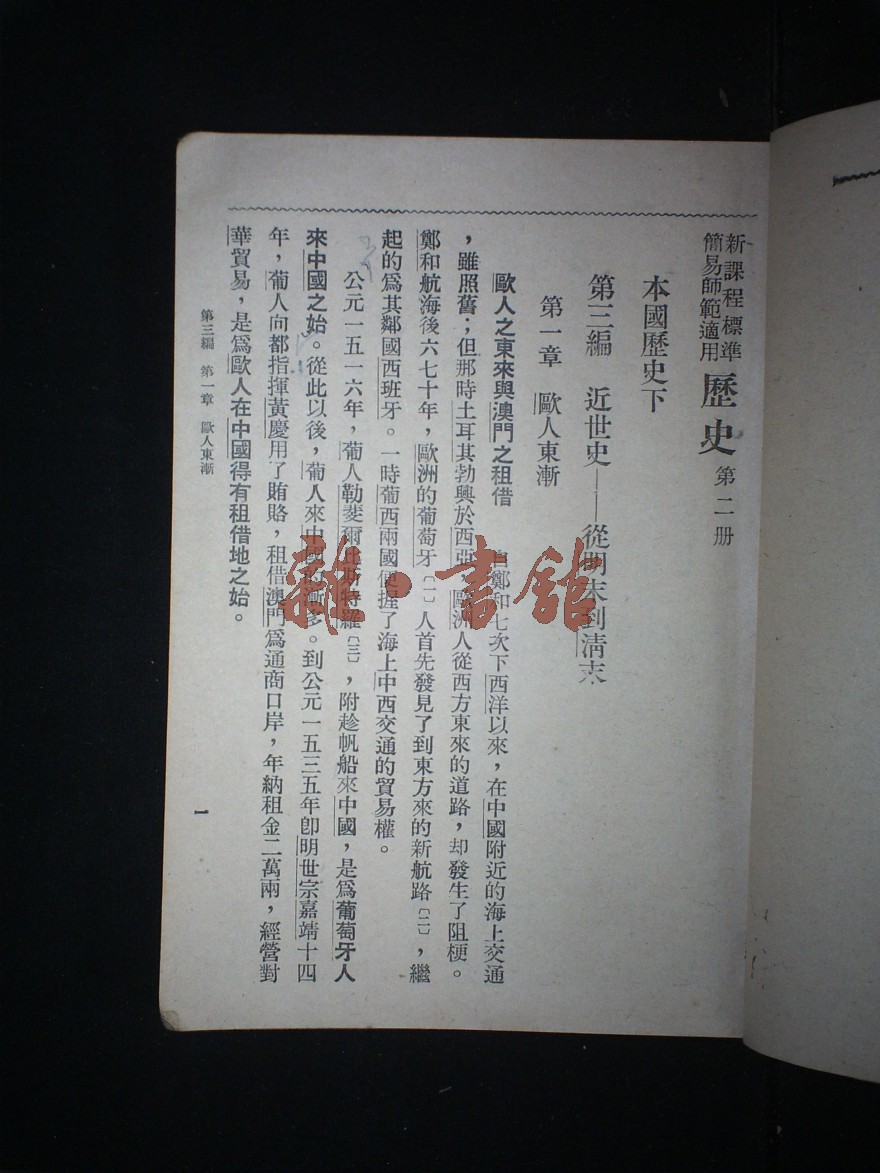 新課程標準
簡易師範適用
歷史 第二册
本國歷史下
第三編 近世史——從明末到清末
第一章 歐人東漸
歐人之東來與澳門之租借 自鄭和七次下西洋以來，在中國附近的海上交通
，雖照舊；但那時土耳其勃興於西亞，歐洲人從西方東來的道路，却發生了阻梗。
鄭和航海後六七十年，歐洲的葡萄牙〔一〕人首先發見了到東方來的新航路〔二〕，繼
起的爲其鄰國西班牙。一時葡西兩國便握了海上中西交通的貿易權。
公元一五一六年，葡人勒斐爾比斯特羅〔三〕，附趁帆船來中國，是爲葡萄牙人
來中國之始。從此以後，葡人來中國的漸多。到公元一五三五年卽明世宗嘉靖十四
年，葡人向都指揮黃慶用了賄賂，租借澳門爲通商口岸，年納租金二萬兩，經營對
華貿易，是爲歐人在中國得有租借地之始。
第三編 第一章 歐人東漸
一
雜·書館